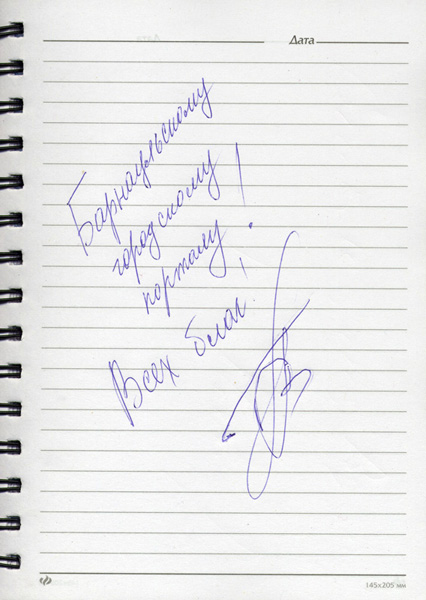 Дата
Барнаульскому
городскому
порталу!
Всех благ!
145x205 мм